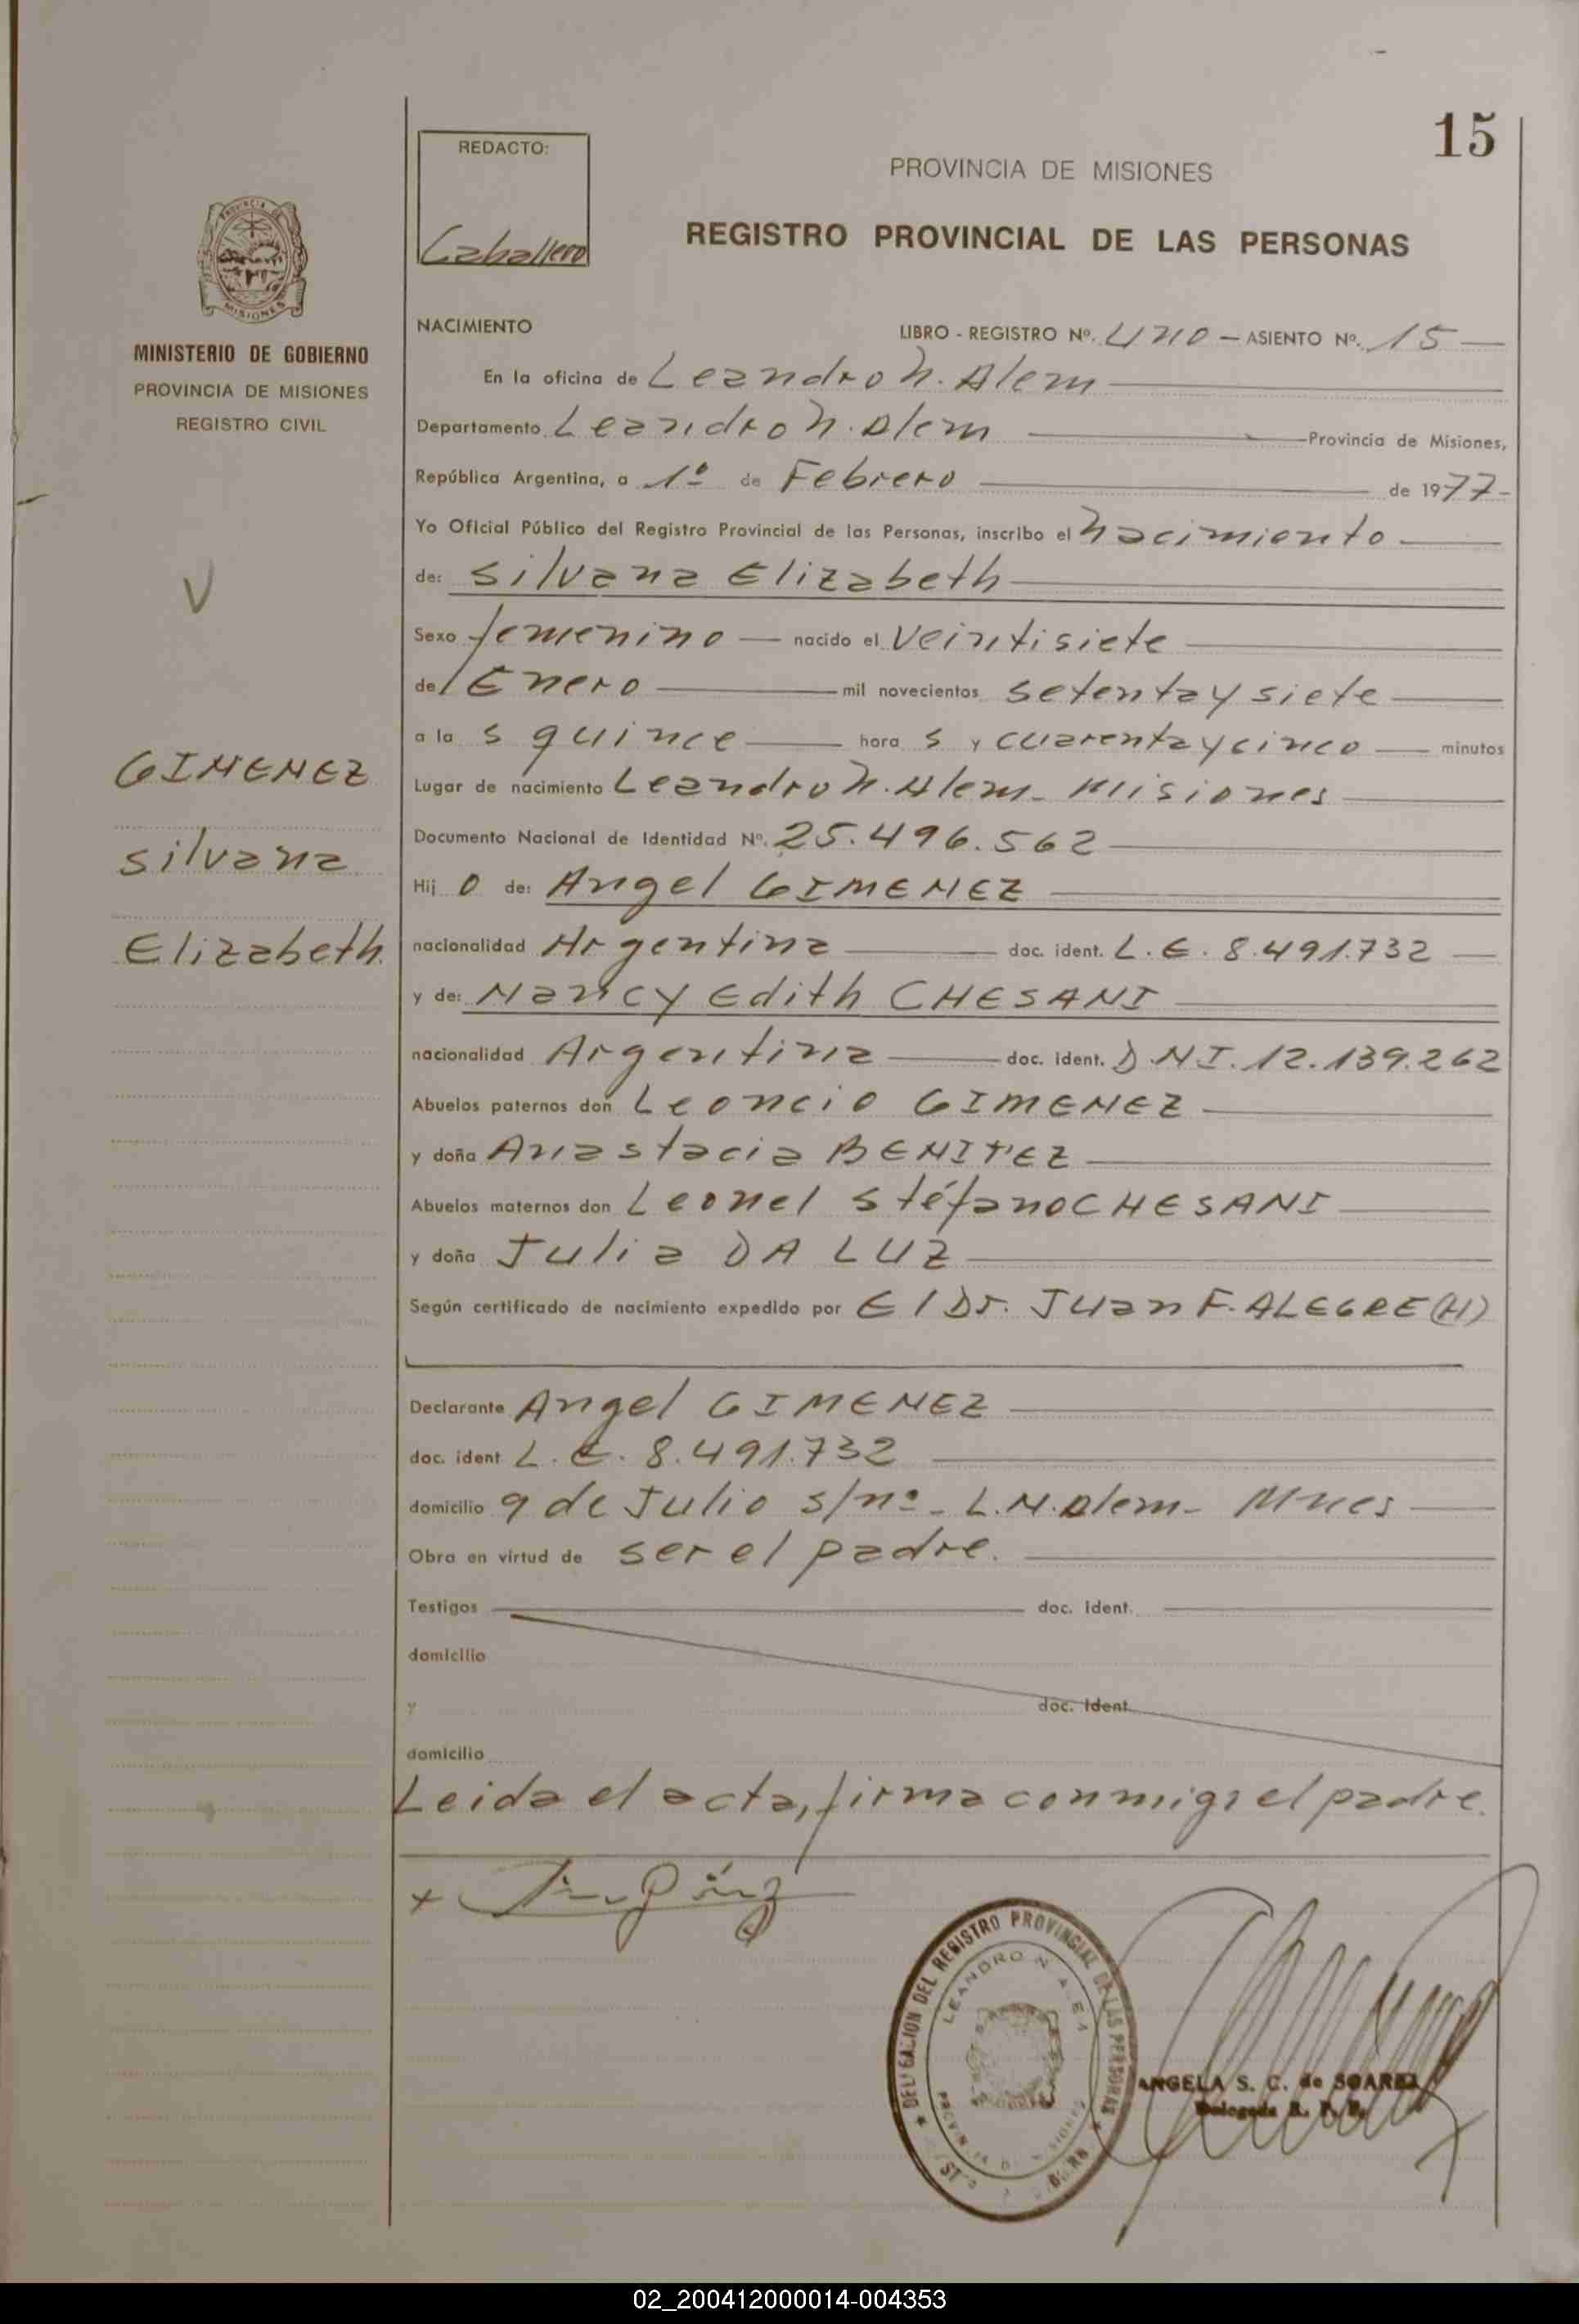 15
REDACTO:
Caballero
PROVINCIA DE MISIONES
REGISTRO PROVINCIAL DE LAS PERSONAS
PROVINCIA DE
MISIONES
MINISTERIO DE GOBIERNO
PROVINCIA DE MISIONES
REGISTRO CIVIL
V
GIMENEZ
Silvana
Elizabeth
NACIMIENTO LIBRO - REGISTRO Nº. UNO - ASIENTO Nº. 15
En la oficina de Leandro N. Alem
Departamento Leandro N. Alem Provincia de Misiones,
República Argentina, a 1º de Febrero de 1977-
Yo Oficial Público del Registro Provincial de las Personas, inscribo el Nacimiento
de: Silvana Elizabeth
Sexo femenino nacido el Veintisiete
de Enero mil novecientos setenta y siete
a la s quince hora s y cuarenta y cinco minutos
Lugar de nacimiento Leandro N. Alem- Misiones
Documento Nacional de Identidad Nº. 25.496.562
Hij o de: Angel GIMENEZ
nacionalidad Argentina doc. ident. L.E. 8.491.732
y de: Nancy Edith CHESANI
nacionalidad Argentina doc. ident. D.N.I. 12.139.262
Abuelos paternos don Leoncio GIMENEZ
y doña Anastacia BENITEZ
Abuelos maternos don Leonel Stéfano CHESANI
y doña Julia DA LUZ
Según certificado de nacimiento expedido por El Dr. Juan F. ALEGRE (H)
Declarante Angel GIMENEZ
doc. ident L.E. 8.491.732
domicilio 9 de Julio s/nº- L.N.Alem- Mnes
Obra en virtud de ser el padre.
Testigos doc. ident.
domicilio
y doc. ident.
domicilio
Leida el acta, firma conmigo el padre.
x
DELEGACION DEL REGISTRO PROVINCIAL DE LAS PERSONAS
LEANDRO N. ALEM
ANGELA S. C. de SOAREZ
Delegada R. P. P.
02_200412000014-004353